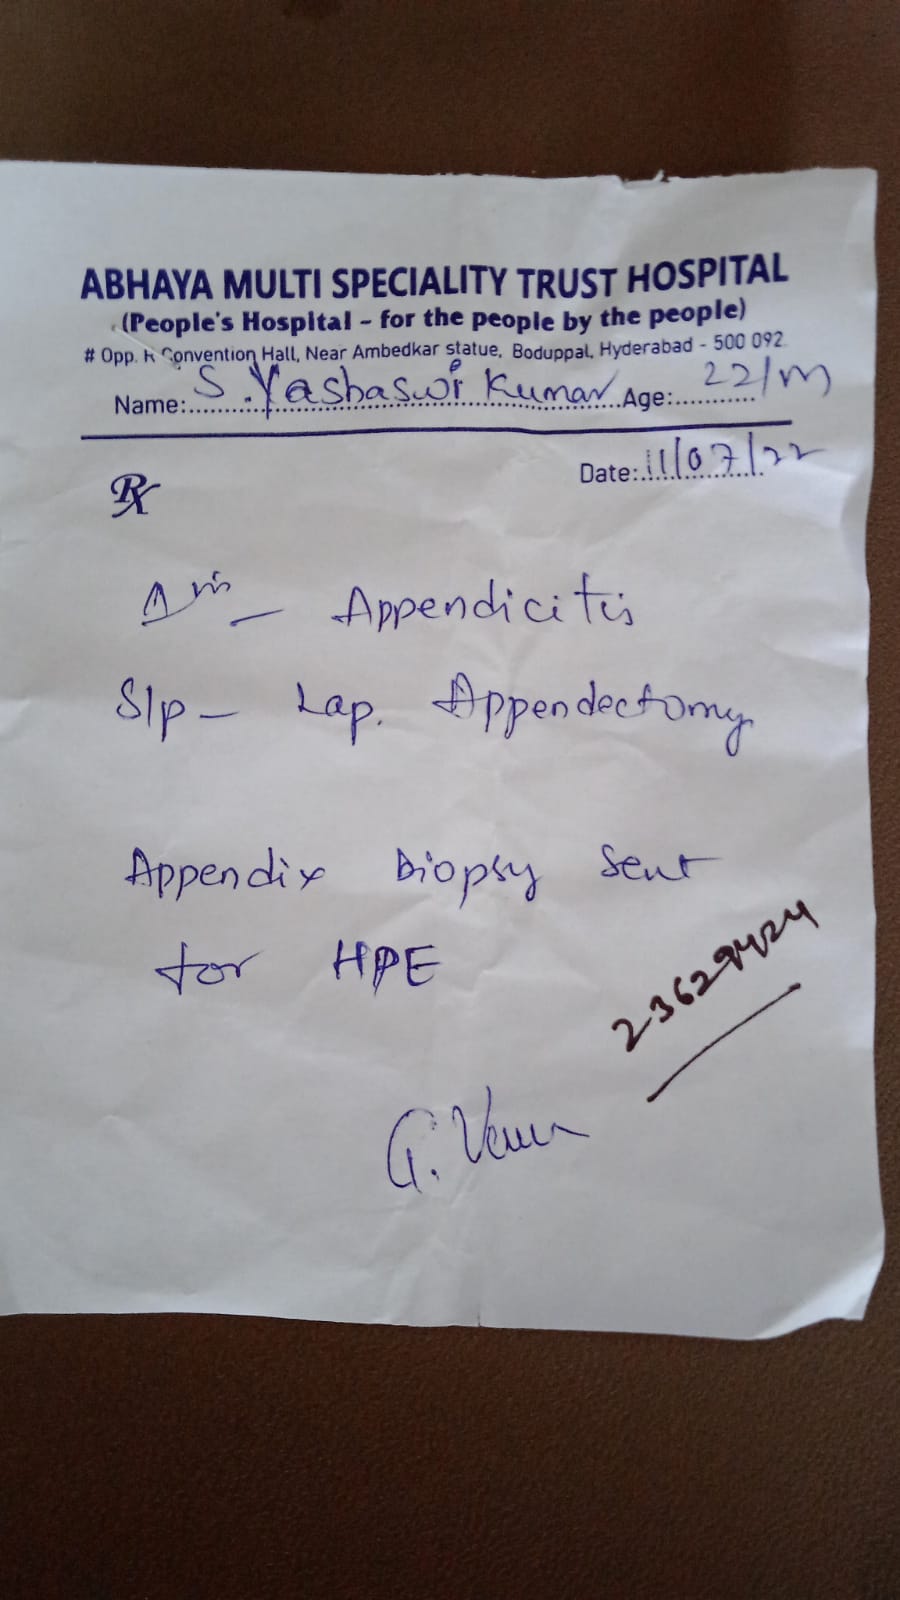 ABHAYA MULTI SPECIALITY TRUST HOSPITAL
(People's Hospital - for the people by the people)
# Opp. R Convention Hall, Near Ambedkar statue, Boduppal, Hyderabad - 500 092.
Name: S. Yashaswi Kumar Age: 22/m
Date: 11/07/22
Rx
Appendicitis
S/p - Lap. Appendectomy
Appendix Biopsy Sent
for HPE
23629424
G.